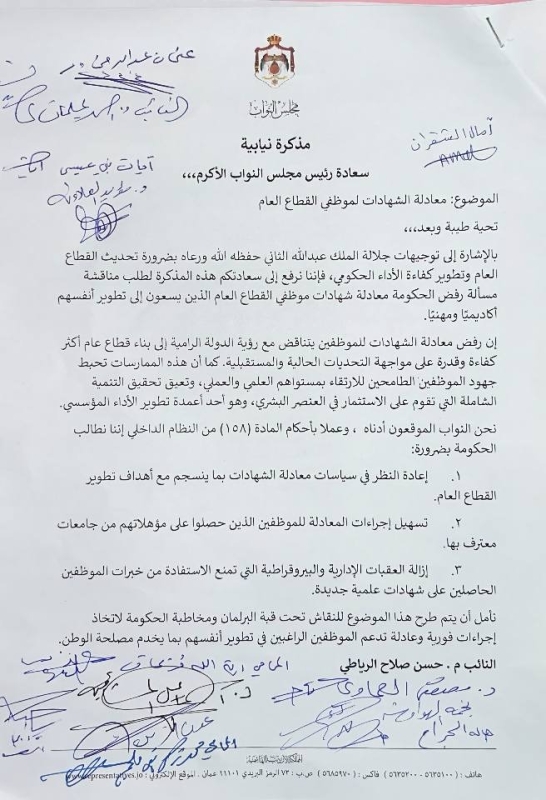 عثمان
النائب د.
مجلس النواب
آمال الشقران
مذكرة نيابية
آيات بني عيسى
سعادة رئيس مجلس النواب الأكرم،،،
الموضوع: معادلة الشهادات لموظفي القطاع العام
تحية طيبة وبعد،،،
بالإشارة إلى توجيهات جلالة الملك عبدالله الثاني حفظه الله ورعاه بضرورة تحديث القطاع
العام وتطوير كفاءة الأداء الحكومي، فإننا نرفع إلى سعادتكم هذه المذكرة لطلب مناقشة
مسألة رفض الحكومة معادلة شهادات موظفي القطاع العام الذين يسعون إلى تطوير أنفسهم
أكاديميًا ومهنيًا.
إن رفض معادلة الشهادات للموظفين يتناقض مع رؤية الدولة الرامية إلى بناء قطاع عام أكثر
كفاءة وقدرة على مواجهة التحديات الحالية والمستقبلية. كما أن هذه الممارسات تحبط
جهود الموظفين الطامحين للارتقاء بمستواهم العلمي والعملي، وتعيق تحقيق التنمية
الشاملة التي تقوم على الاستثمار في العنصر البشري، وهو أحد أعمدة تطوير الأداء المؤسسي.
نحن النواب الموقعون أدناه ، وعملا بأحكام المادة (١٥٨) من النظام الداخلي إننا نطالب
الحكومة بضرورة:
١. إعادة النظر في سياسات معادلة الشهادات بما ينسجم مع أهداف تطوير
القطاع العام.
٢. تسهيل إجراءات المعادلة للموظفين الذين حصلوا على مؤهلاتهم من جامعات
معترف بها.
٣. إزالة العقبات الإدارية والبيروقراطية التي تمنع الاستفادة من خبرات الموظفين
الحاصلين على شهادات علمية جديدة.
نأمل أن يتم طرح هذا الموضوع للنقاش تحت قبة البرلمان ومخاطبة الحكومة لاتخاذ
إجراءات فورية وعادلة تدعم الموظفين الراغبين في تطوير أنفسهم بما يخدم مصلحة الوطن.
النائب م . حسن صلاح الرياطي
المحامي
د.
المملكة الأردنية الهاشمية
هاتف : (٥٦٣٥١٠٠ - ٥٦٣٥٢٠٠) فاكس : (٥٦٨٥٩٧٠) ص.ب : ٧٣ الرمز البريدي ١١١٠١ عمان . الموقع الإلكتروني : www.representatives.jo